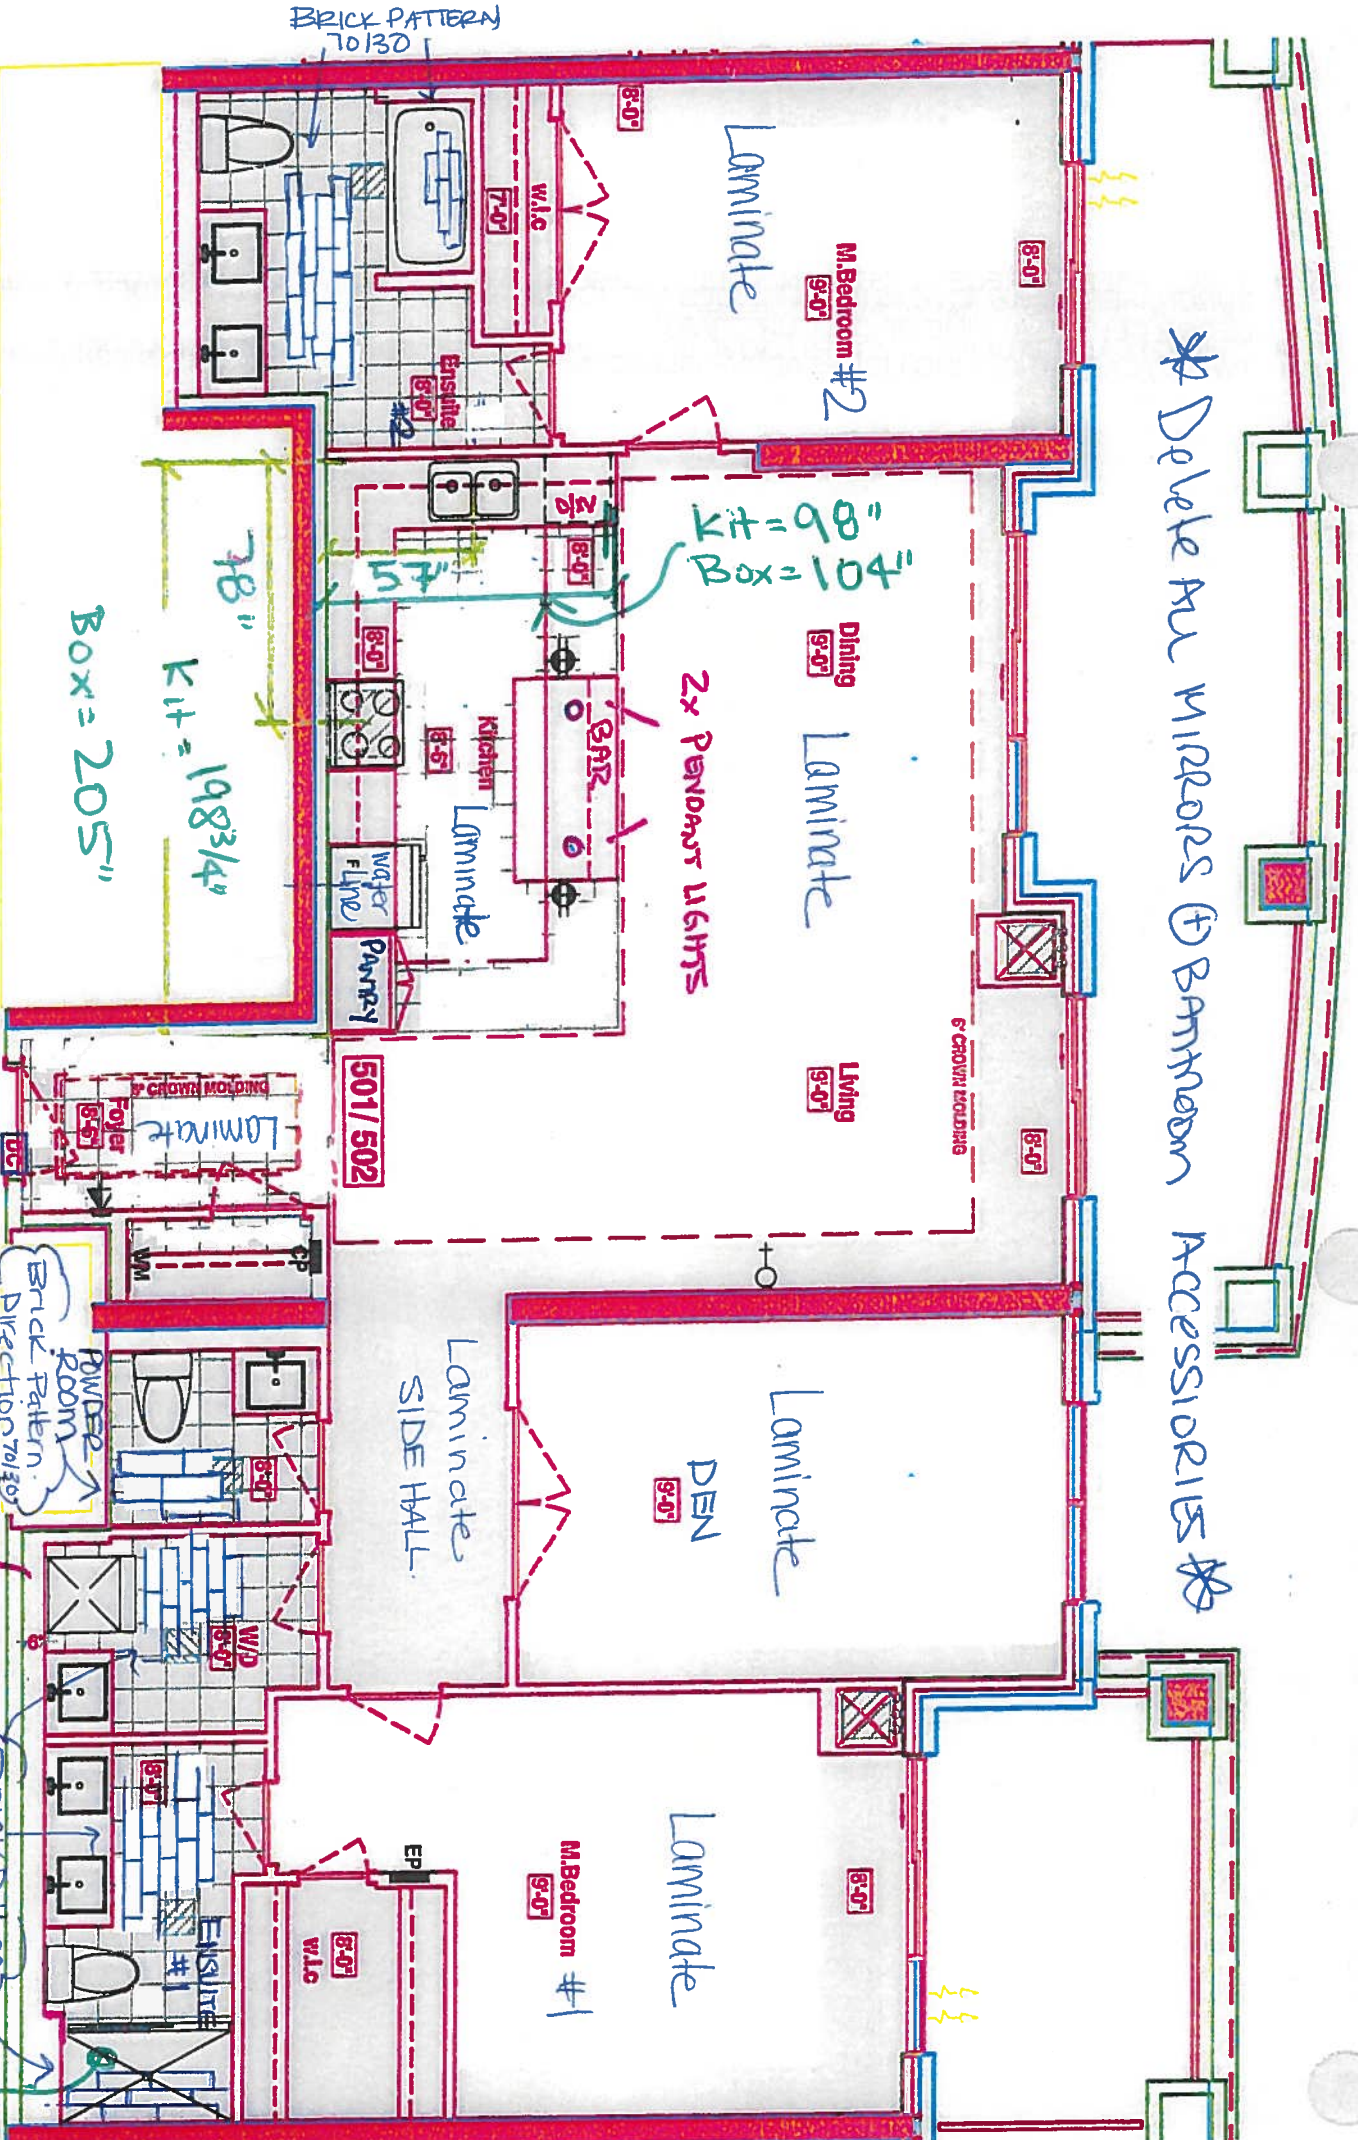 BRICK PATTERN
70/30
* Delete All MIRRORS ⊕ BATHROOM ACCESSIORIES *
8'-0"
Laminate
M.Bedroom #2
9'-0"
8'-0"
W.I.C
7'-0"
Ensuite
8'-0"
#2
Kit = 98"
Box = 104"
8'-0"
57"
8'-0"
78"
Kit = 198 3/4"
Box = 205"
Dining
9'-0"
Laminate
2x PENDANT LIGHTS
BAR
Kitchen
8'-6"
Laminate
Water
F Line
PANTRY
6" CROWN MOLDING
Living
9'-0"
8'-0"
501/502
6" CROWN MOLDING
Foyer
8'-6"
Laminate
UC
CP
WM
POWDER
ROOM
Brick Pattern
Direction 70/30
8'-0"
Laminate
SIDE HALL
Laminate
DEN
9'-0"
W/D
8'-0"
8'-0"
ENSUITE
#1
EP
W.I.C
8'-0"
Laminate
M.Bedroom #1
9'-0"
8'-0"